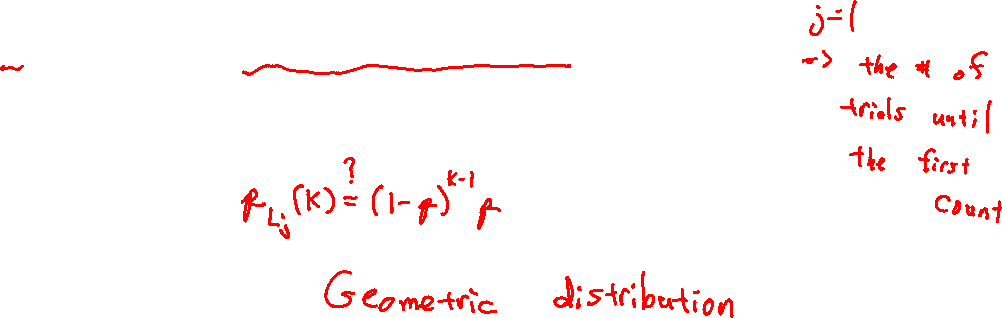 j=1
-> the # of
trials until
the first
count
p_{L_j}(k) ≟ (1-p)^{k-1} p
Geometric distribution